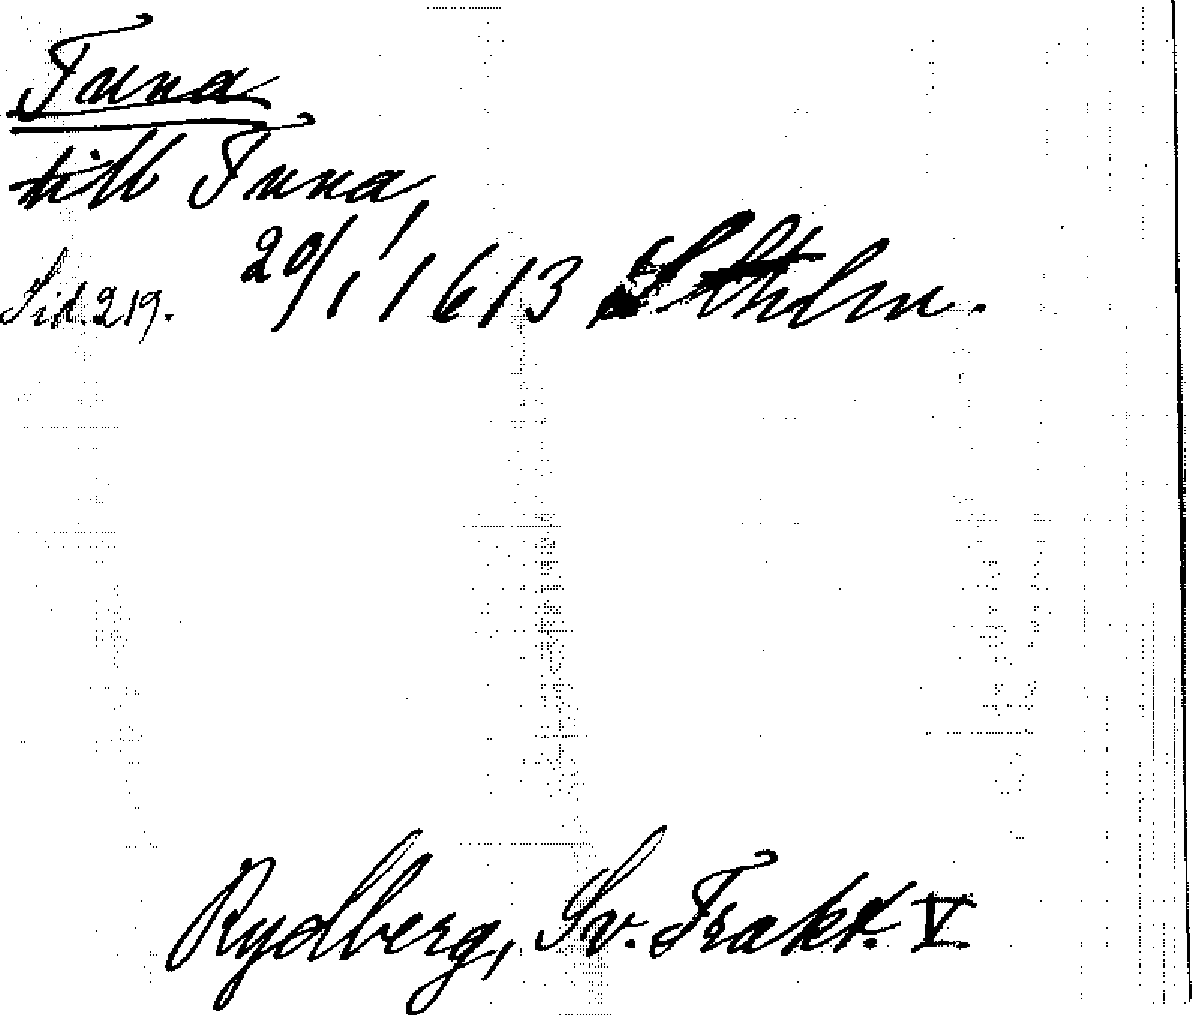 Tuna
till Tuna,
Sid. 219. 20/1 1613 Sthlm.
Rydberg, Sv. Trakt. V.